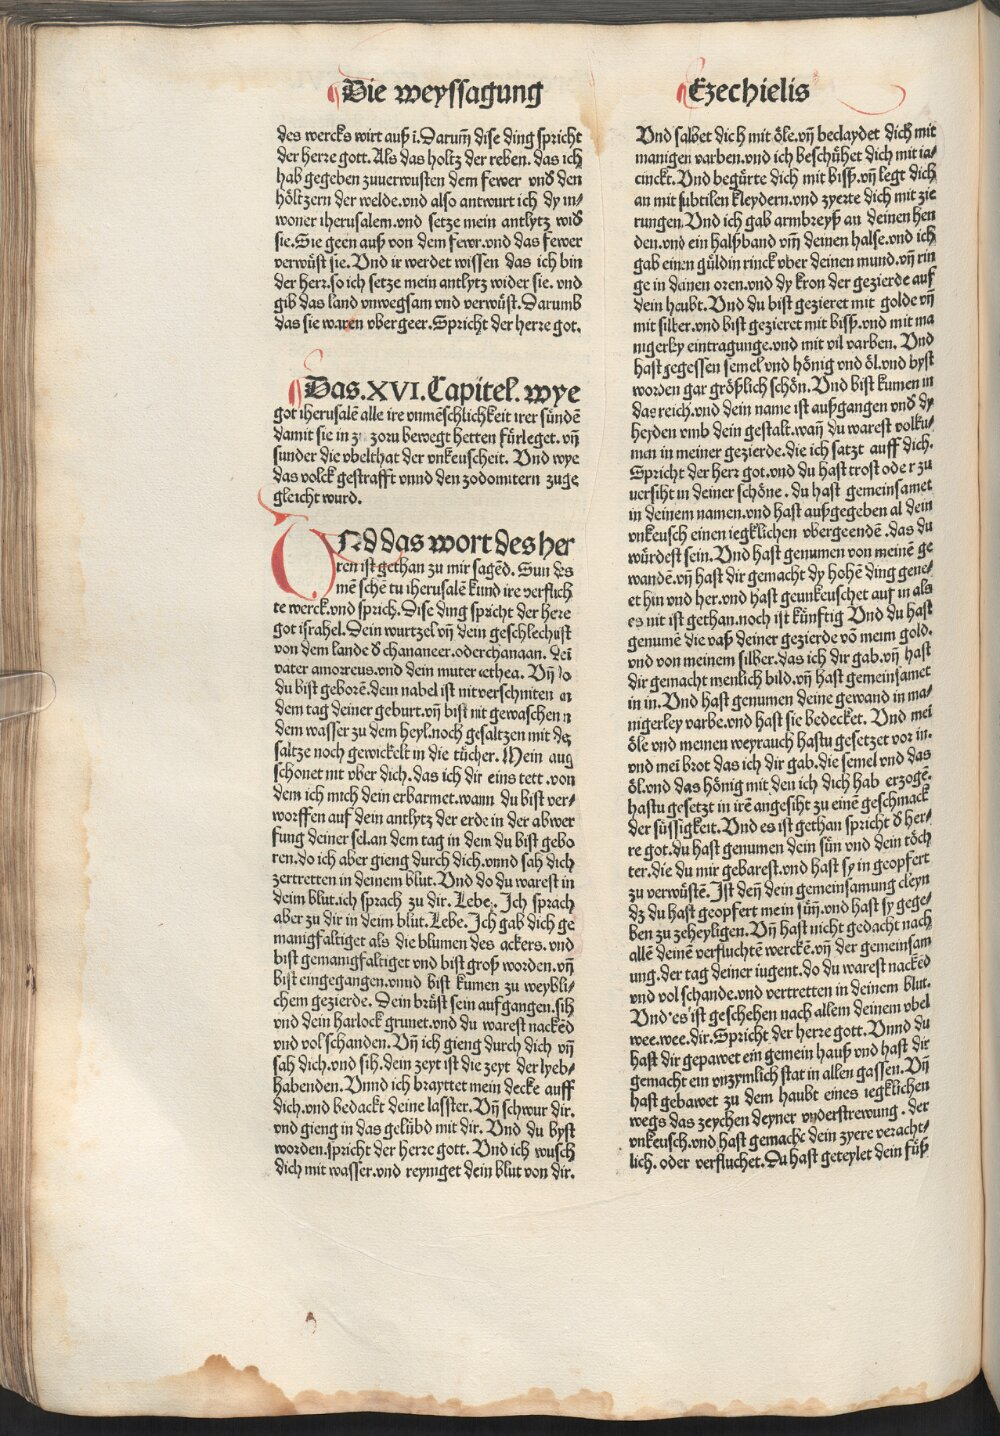 Die weyssagung
Ezechielis
des wercks wirt auß i. Darum̄ dise ding spricht
der herre gott. Als das holtz der reben. das ich
hab gegeben zuuerwusten dem fewer vnd den
höltzern der welde. vnd also antwurt ich dy in⸗
woner iherusalem. vnd setze mein antlytz wid
sie. Sie geen auß von dem fewr. vnd das fewer
verwüst sie. Vnd ir werdet wissen das ich bin
der herr. so ich setze mein antlytz wider sie. vnd
gib das land vnwegsam vnd verwüst. Darumb
das sie waren vbergeer. Spricht der herre got.
Das. XVI. Capitel. wye
got iherusalē alle ire vnmēschlichkeit irer sündē
damit sie in zu zorn bewegt hetten fürleget. vn̄
sunder die vbelthat der vnkeuscheit. Vnd wye
das volck gestrafft vnnd den zodomitern zuge
gleicht wurd.
VNd das wort des her
ren ist gethan zu mir sagēd. Sun des
mēschē tu iherusalē kund ire verflich
te werck. vnd sprich. Dise ding spricht der here
got israhel. Dein wurtzel vn̄ dein geschlecht ist
von dem lande d̄ chananeer. oder chanaan. Dei
vater amoreus. vnd dein muter cethea. Vn̄ do
du bist geborē. dein nabel ist nit verschniten an
dem tag deiner geburt. vn̄ bist nit gewaschen
dem wasser zu dem heyl. noch gesaltzen mit dē
saltze noch gewickelt in die tücher. Mein aug
schonet nit vber dich. das ich dir eins tett. von
dem ich mich dein erbarmet. wann du bist ver⸗
worffen auf dein antlytz der erde in der abwer
fung deiner sel. an dem tag in dem du bist gebo
ren. do ich aber gieng durch dich. vnnd sah dich
zertretten in deinem blut. Vnd do du warest in
deim blut. ich sprach zu dir. Lebe. Ich sprach
aber zu dir in deim blut. Lebe. Ich gab dich ge
manigfaltiget als die blumen des ackers. vnd
bist gemanigfaltiget vnd bist groß worden. vn̄
bist eingegangen. vnnd bist kumen zu weybli⸗
chem gezierde. Dein brüst sein aufgangen. sih
vnd dein harlock grunet. vnd du warest nackēd
vnd vol schanden. Vn̄ ich gieng durch dich vn̄
sah dich. vnd sih. dein zeyt ist die zeyt der lyeb⸗
habenden. Vnnd ich brayttet mein decke auff
dich. vnd bedackt deine laster. Vn̄ schwur dir.
vnd gieng in das gelübd mit dir. Vnd du byst
worden. spricht der herre gott. Vnd ich wusch
dich mit wasser. vnd reyniget dein blut von dir.
Vnd salbet dich mit öle. vn̄ beclaydet dich mit
manigen varben. vnd ich beschühet dich mit ia⸗
cinckt. Vnd begürte dich mit biss. vn̄ legt dich
an mit subtilen kleydern. vnd zyerte dich mit zie
rungen. Vnd ich gab armbreyß an deinen hen
den. vnd ein halßband vm̄ deinen halse. vnd ich
gab einen güldin rinck vber deinen mund. vn̄ rin
ge in deinen oren. vnd dy kron der gezierde auf
dein haubt. Vnd du bist gezieret mit golde vn̄
mit silber. vnd bist gezieret mit biss. vnd mit ma
nigerley eintragunge. vnd mit vil varben. Vnd
hast gegessen semel vnd hönig vnd öl. vnd byst
worden gar größlich schön. Vnd bist kumen in
das reich. vnd dein name ist außgangen vnd dy
heyden vmb dein gestalt. wan̄ du warest volku⸗
men in meiner gezierde. die ich satzt auff dich.
Spricht der herr got. vnd du hast trost oder zu
uersiht in deiner schöne. du hast gemeinsamet
in deinem namen. vnd hast außgegeben al dein
vnkeusch einen iegklichen vbergeendē. das du
würdest sein. Vnd hast genumen von meinē ge
wandē. vn̄ hast dir gemacht dy hohē ding gene⸗
et hin vnd her. vnd hast geunkeuschet auf in als
es nit ist gethan. noch ist künftig Vnd du hast
genumē die vaß deiner gezierde vō meim gold.
vnd von meinem silber. das ich dir gab. vn̄ hast
dir gemacht menlich bild. vn̄ hast gemeinsamet
in in. Vnd hast genumen deine gewand in ma⸗
nigerley varbe. vnd hast sie bedecket. Vnd mei
öle vnd meinen weyrauch hastu gesetzet vor in.
vnd mei brot das ich dir gab. die semel vnd das
öl. vnd das hönig mit den ich dich hab erzogē.
hastu gesetzt in irē angesiht zu einē geschmack
der süssigkeit. Vnd es ist gethan spricht d̄ her⸗
re got. du hast genumen dein sün vnd dein töch
ter. die du mir gebarest. vnd hast sy in geopfert
zu verwüstē. Ist den̄ dein gemeinsamung cleyn
dz du hast geopfert mein sün̄. vnd hast sy gege⸗
ben zu zeheyligen. Vn̄ hast nicht gedacht nach
allē deinē verfluchtē werckē. vn̄ der gemeinsam
ung. der tag deiner iugent. do du warest nackēd
vnd vol schande. vnd vertretten in deinem blut.
Vnd es ist geschehen nach allem deinem vbel
wee. wee. dir. Spricht der herre gott. Vnnd du
hast dir gepawet ein gemein hauß vnd hast dir
gemacht ein vnzymlich stat in allen gassen. Vn̄
hast gebawet zu dem haubt eines iegklichen
wegs das zeychen deyner vnderstrewung. der
vnkeusch. vnd hast gemacht dein zyere veracht⸗
lich. oder verfluchet. Du hast geteylet dein füß